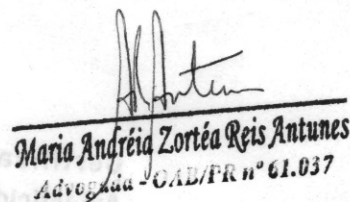 Maria Andréia Zortéa Reis Antunes
Advogada - OAB/PR nº 61.037